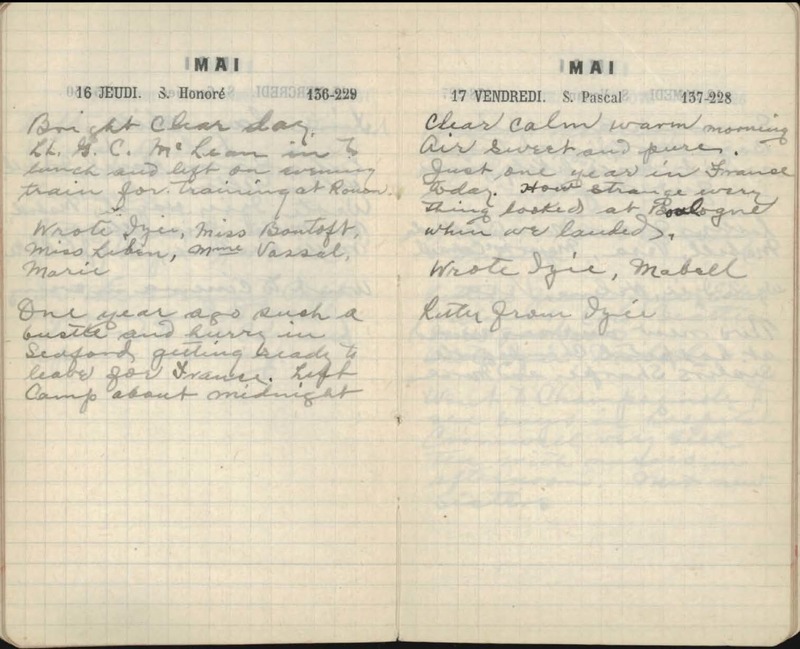 MAI
16 JEUDI. S. Honoré 136-229
Bright clear day.
Lt. G. C. McLean in to
lunch and left on evening
train for training at Rouen.
Wrote Izie, Miss Bontoft,
Miss Liben, Mme Vassal,
Marie
One year ago such a
bustle and hurry in
Seaford getting ready to
leave for France. Left
Camp about midnight
MAI
17 VENDREDI. S. Pascal 137-228
Clear calm warm morning
Air sweet and pure.
Just one year in France
today. How strange every
thing looked at Boulogne
when we landed.
Wrote Izie, Mabell
Letter from Izie